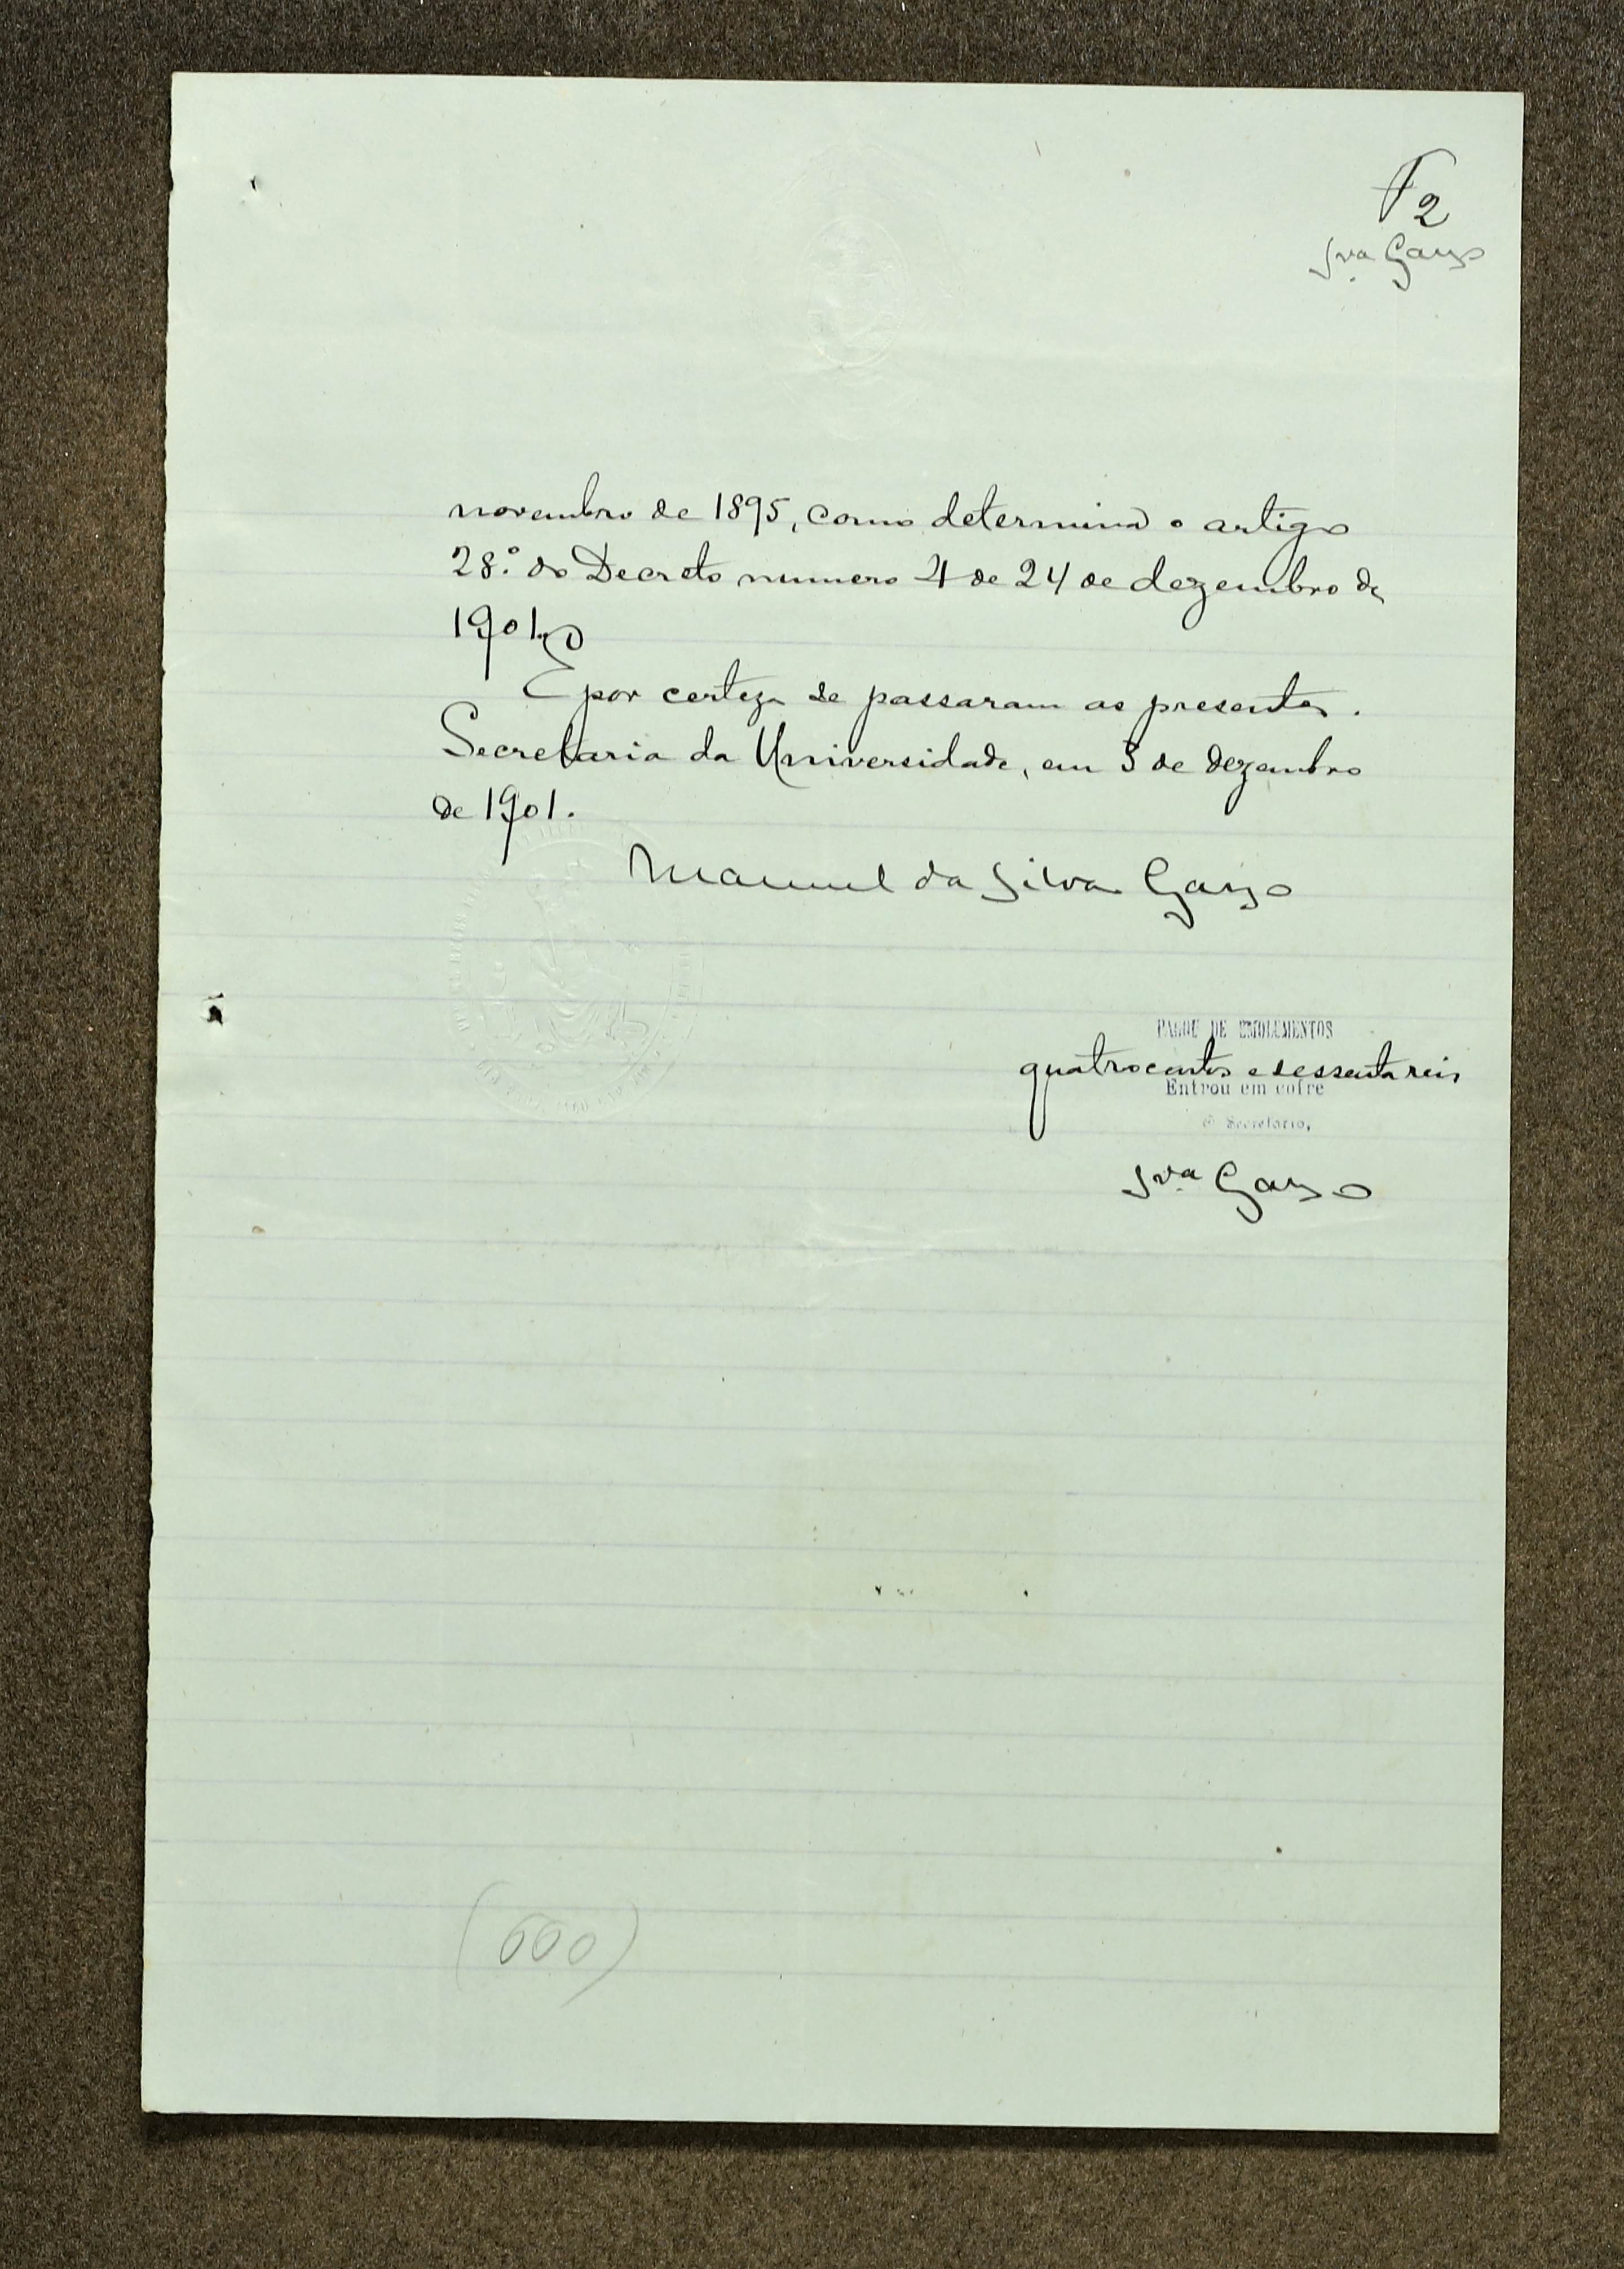 F 2
Sva Gayo
novembro de 1895, como determina o artigo
28.º do Decreto numero 4 de 24 de dezembro de
1901.
E por certeza se passaram as presentes.
Secretaria da Universidade, em 3 de dezembro
de 1901.
Manuel da Silva Gayo
PAGOU DE EMOLUMENTOS
quatrocentos e sessenta reis
Entrou em cofre
O Secretario,
Sva Gayo
(600)